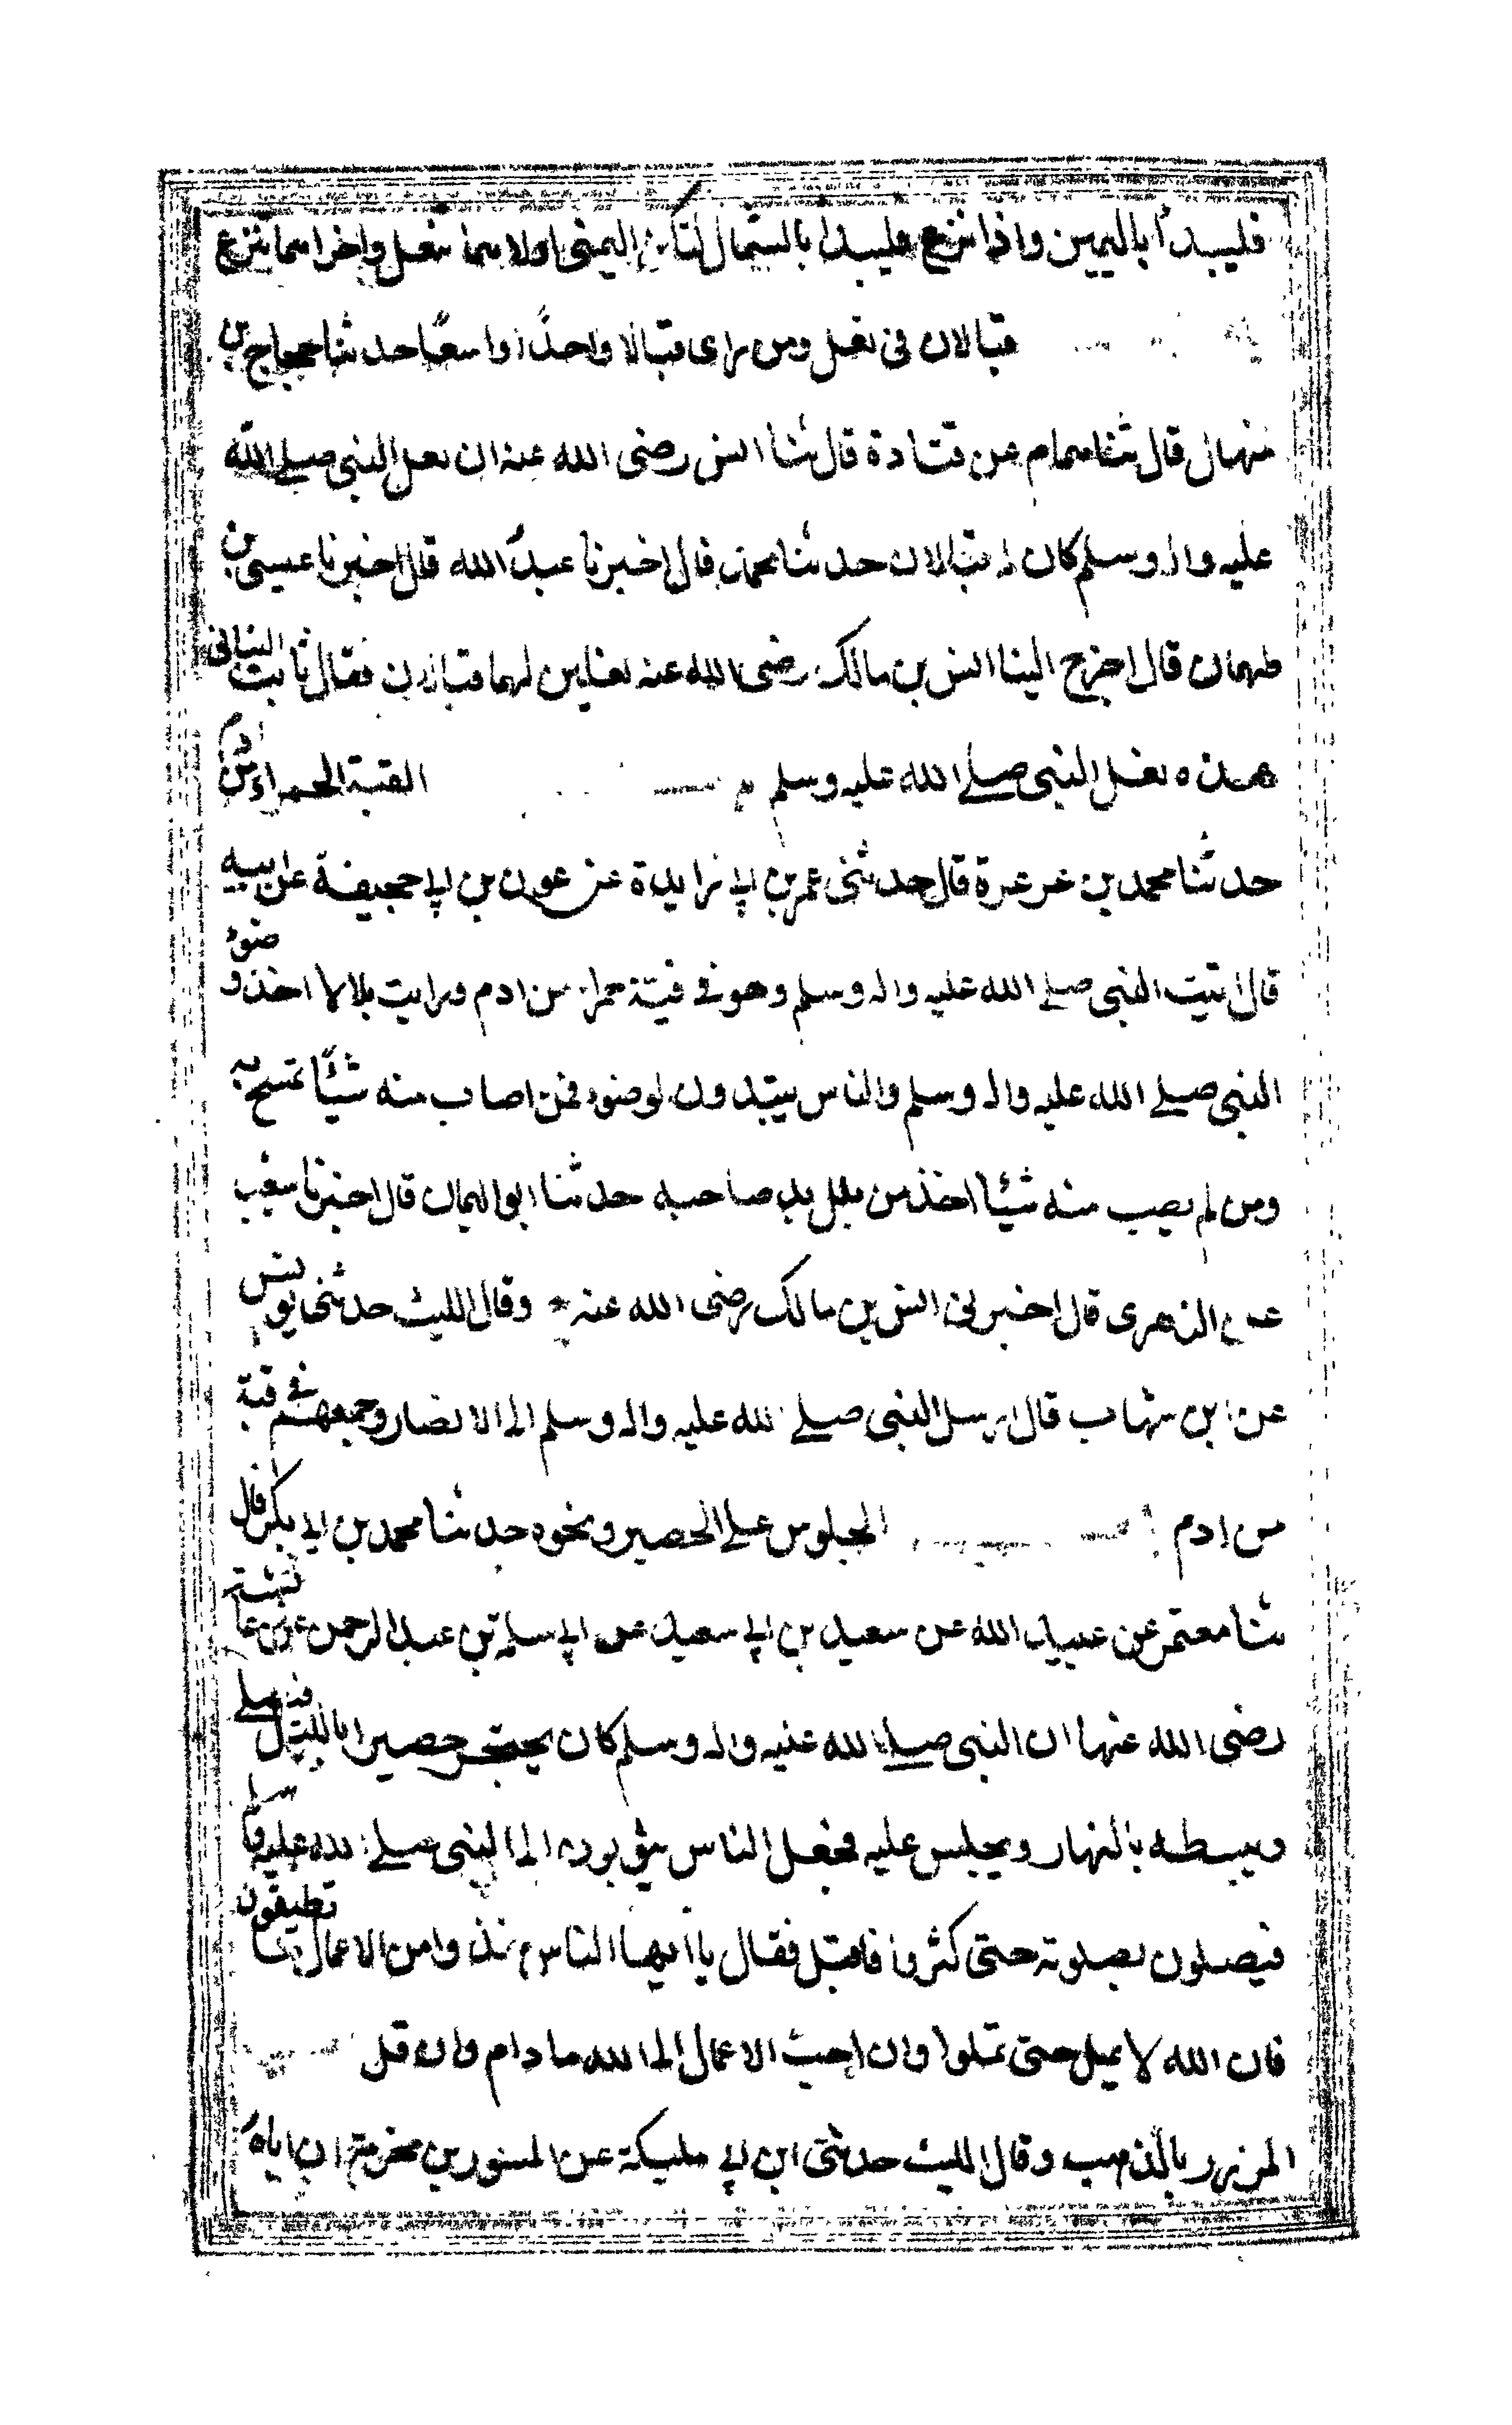 فليبدأ باليمين واذا نزع فليبدا بالشمال لتكن اليمنى اولاهما تنعل واخراهما تنزع
قبالان فى نعل ومن راى قبالا واحدًا واسعًا حدثنا حجاج بن
منهال قال ثنا همام عن قتادة قال ثنا انس رضى الله عنه ان نعل النبى صلے الله
عليه واله وسلم كان له قبالان حدثنا محمد قال اخبرنا عبد الله قال اخبرنا عيسى بن
طهمان قال اخرج الينا انس بن مالك رضى الله عنه نعلين لهما قبالان فقال ثابت البنانى
هذه نعل النبى صلے الله عليه وسلم القبة الحمراء من ادم
حدثنا محمد بن عرعرة قال حدثنى عمر بن ابى زايدة عن عون بن ابى جحيفة عن ابيه
قال اتيت النبى صلے الله عليه واله وسلم وهو فى قبة حمراء من ادم ورايت بلالا اخذ وضوء
النبى صلے الله عليه واله وسلم والناس يبتدرون لوضوء فمن اصاب منه شيئًا تمسح به
ومن لم يصب منه شيئا اخذ من بلل يد صاحبه حدثنا ابو اليمان قال اخبرنا شعيب
عن الزهرى قال اخبرنى انس بن مالك رضى الله عنه * وقال الليث حدثنى يونس
عن ابن شهاب قال ارسل النبى صلے الله عليه واله وسلم الى الانصار وجمعهم فى قبة
من ادم الجلوس على الحصير ونحوه حدثنا محمد بن ابى بكر قال
ثنا معتمر عن عبيد الله عن سعيد بن ابى سعيد عن ابى سلمة بن عبد الرحمن عن عائشة
رضى الله عنها ان النبى صلے الله عليه واله وسلم كان يحتجر حصيرا بالليل فيصلى
ويبسطه بالنهار ويجلس عليه فجعل الناس يثوبون الى النبى صلے الله عليه وسلم
فيصلون بصلوته حتى كثروا فاقبل فقال يا ايها الناس خذوا من الاعمال ما تطيقون
فان الله لا يمل حتى تملوا وان احب الاعمال الى الله ما دام وان قل
المزرر بالذهب وقال الليث حدثنى ابن ابى مليكة عن المسور بن مخرمة ان اباه